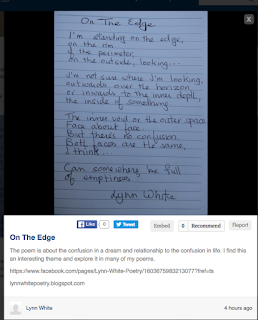 X
On The Edge
I'm standing on the edge,
on the rim
of the perimeter,
on the outside, looking...
I'm not sure where I'm looking,
outwards over the horizon
or inwards to the inner depth,
the inside of something
The inner void or the outer space
Face about face
But there's no confusion
Both faces are the same,
I think...
Can somewhere be full
of emptiness?
Lynn White
Like 0 Tweet Embed 0 Recommend Report
On The Edge
The poem is about the confusion in a dream and relationship to the confusion in life. I find this
an interesting theme and explore it in many of my poems.
https://www.facebook.com/pages/Lynn-White-Poetry/1603675983213077?fref=ts
lynnwhitepoetry.blogspot.com
Lynn White 4 hours ago